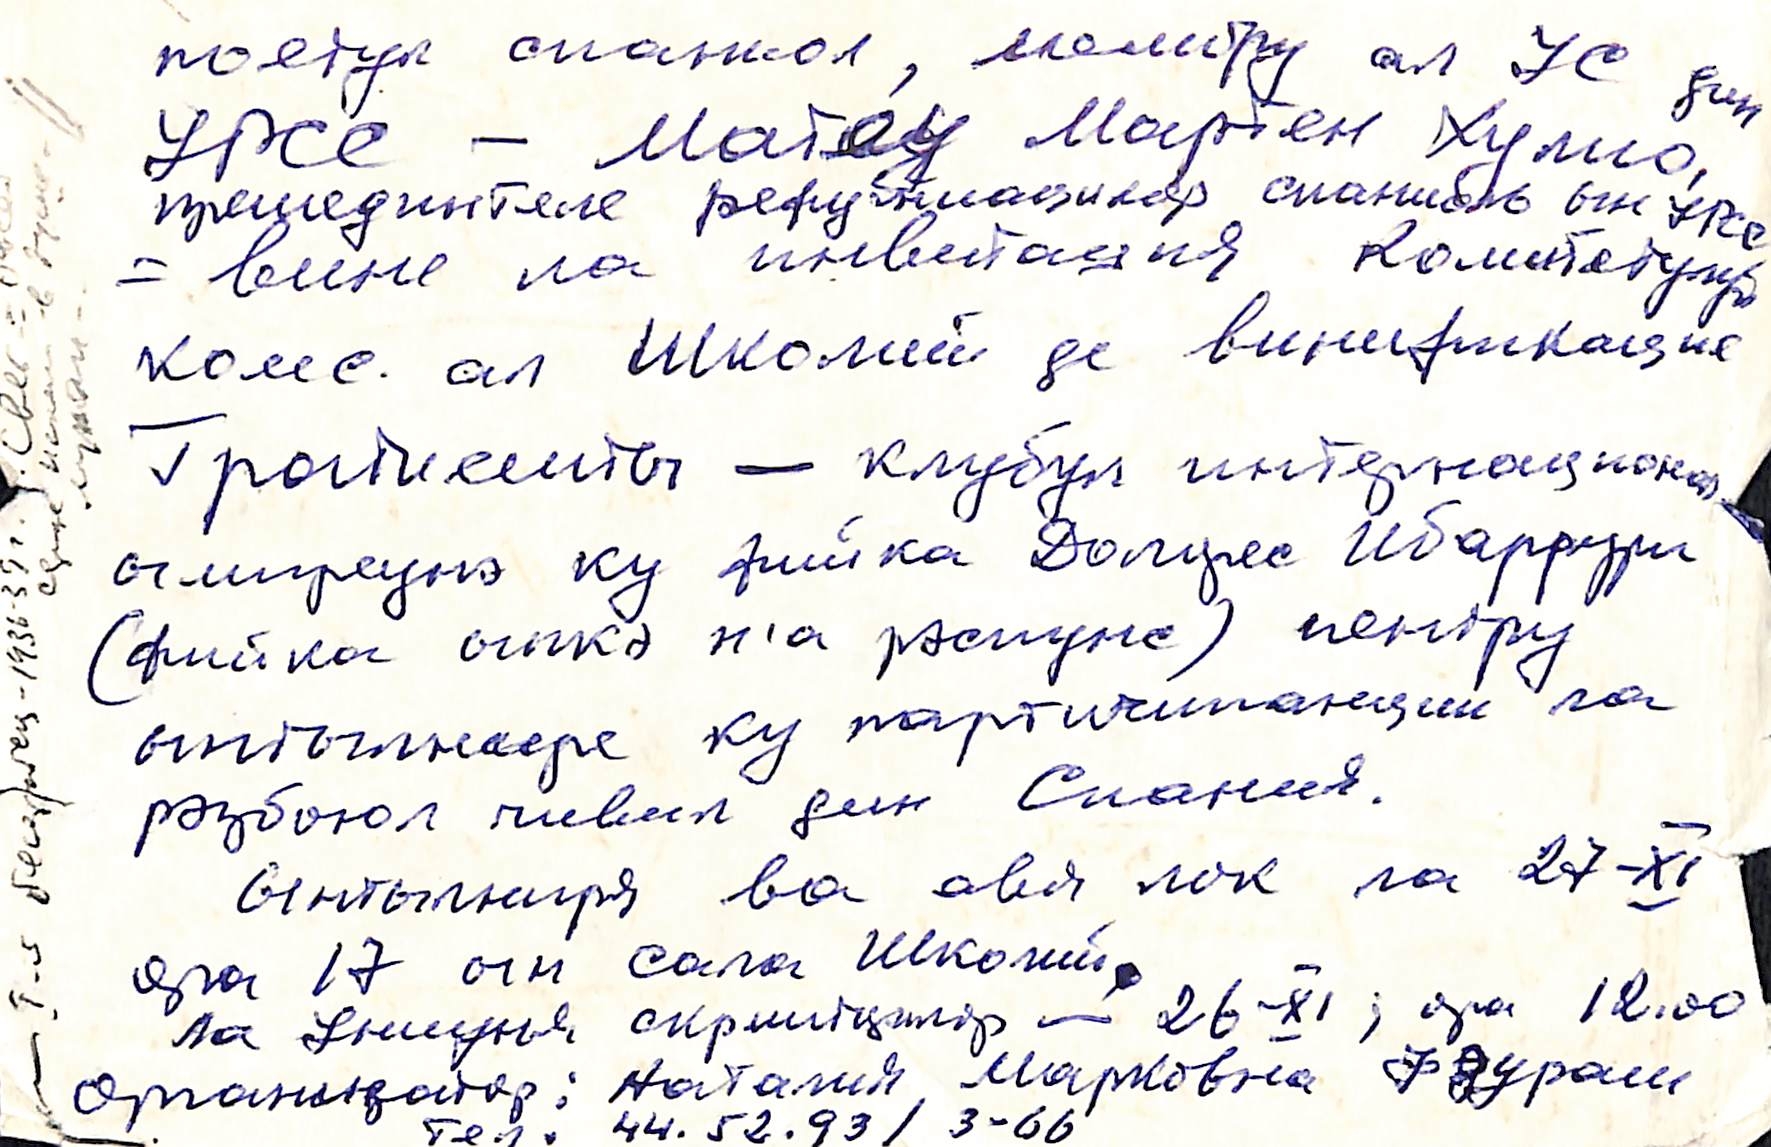 поетул спаниол, мембру ал УС дин
УРСС — Матеу Мартен Хулио,
прешединтеле рефуӂиацилор спаниоль ын УРСС
= вине ла инвитация Комитетулуй
комс. ал Школий де винификацие
Тратиешты — клубул интернационал
ымпреунэ ку фийка Долорес Ибаррури
(фийка ынкэ н'а рэспунс) пентру
ынтылнире ку партичипанций ла
рэзбоюл чивил дин Спания.
Ынтылниря ва авя лок ла 27-XI
ора 17 ын сала Школий.
Ла Униуня скрииторилор — 26-XI; ора 12.00
Организатор: Наталия Марковна
тел. 44.52.93 / 3-66
1936-39 г.